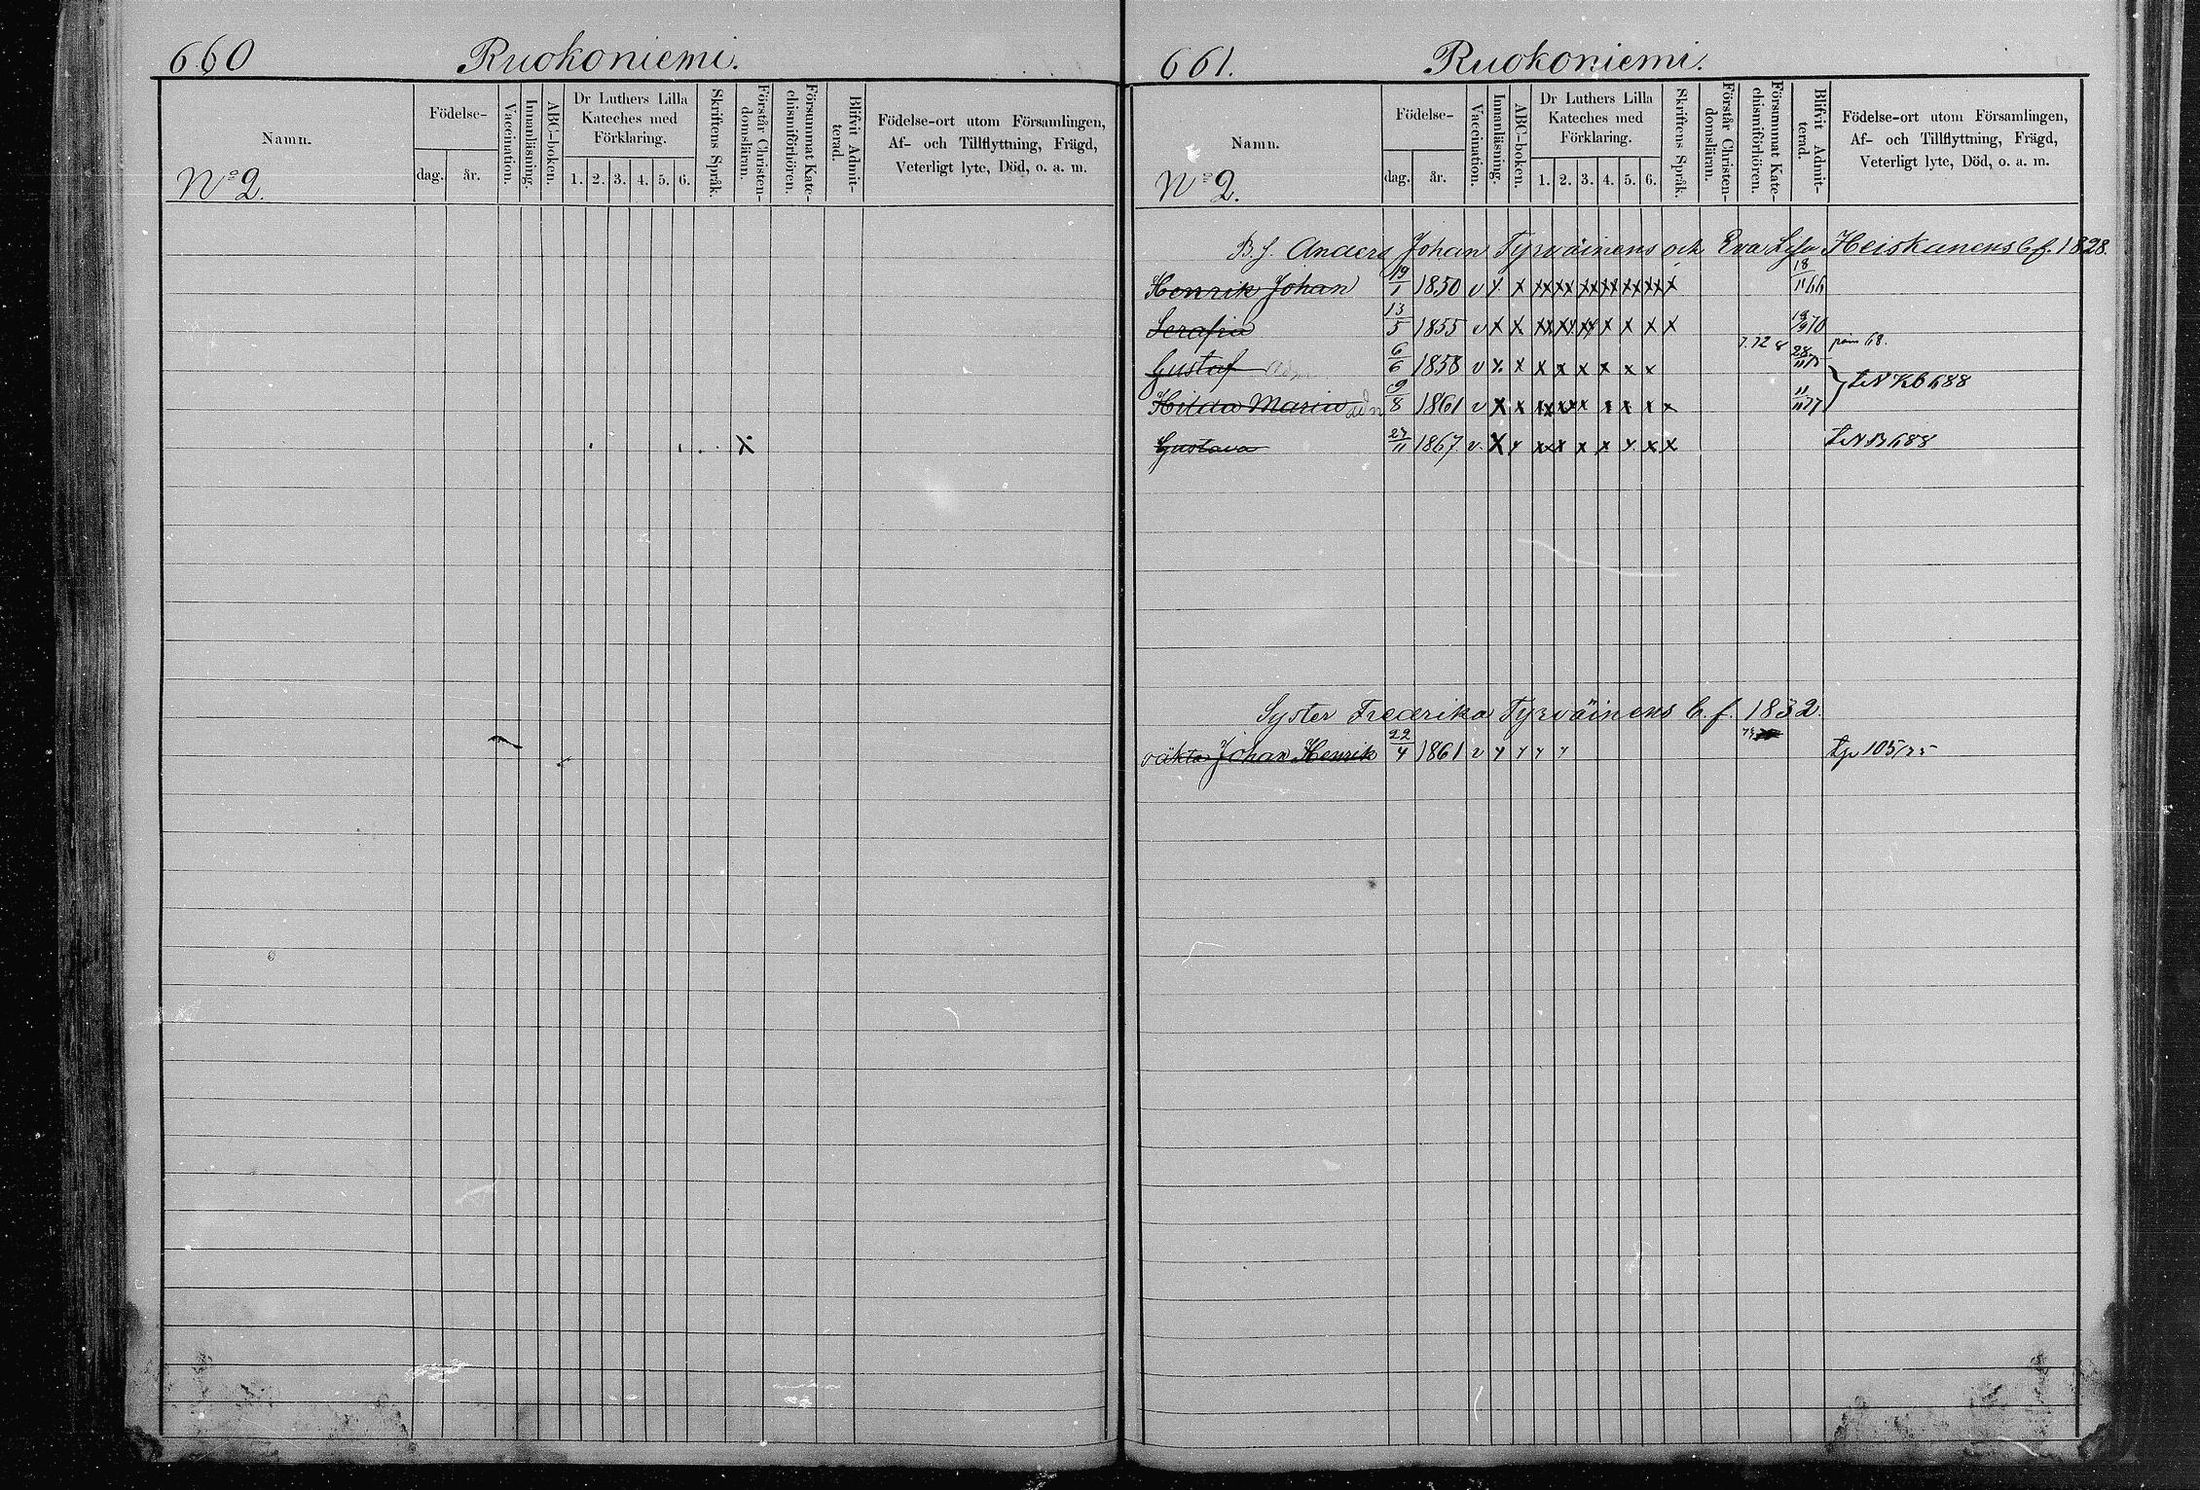 660 Ruokoniemi.
Namn.
Födelse-
dag. år.
Vaccination.
Innanläsning.
ABC-boken.
Dr Luthers Lilla
Kateches med
Förklaring.
1. 2. 3. 4. 5. 6.
Skriftens Språk.
Förstår Christen-
domsläran.
Försummat Kate-
chismiförhören.
Blifvit Admit-
terad.
Födelse-ort utom Församlingen,
Af- och Tillflyttning, Frägd,
Veterligt lyte, Död, o. a. m.
No 2.
x
661. Ruokoniemi.
Namn.
Födelse-
dag. år.
Vaccination.
Innanläsning.
ABC-boken.
Dr Luthers Lilla
Kateches med
Förklaring.
1. 2. 3. 4. 5. 6.
Skriftens Språk.
Förstår Christen-
domsläran.
Försummat Kate-
chismiförhören.
Blifvit Admit-
terad.
Födelse-ort utom Församlingen,
Af- och Tillflyttning, Frägd,
Veterligt lyte, Död, o. a. m.
No 2.
B. f. Anders Johan Tyrväinens och Eva Lisa Heiskanens b. f. 1828.
Henrik Johan 19/1 1850 v x x xx xx xx xx xx xx x 18/11 66
Serafia 13/5 1855 v x x xx xx xx x x x x 70
Gustaf 6/6 1858 v x x x x x x x x 28/11
Hilda Maria 9/8 1861 v x x x x x x x x x 11/11 77 688
Gustava 27/11 1867 v x x x x x x x x x 688
Syster Fredrika Tyrväinens b. f. 1832.
oäkta Johan Henrik 22/4 1861 v x x x x 105/75